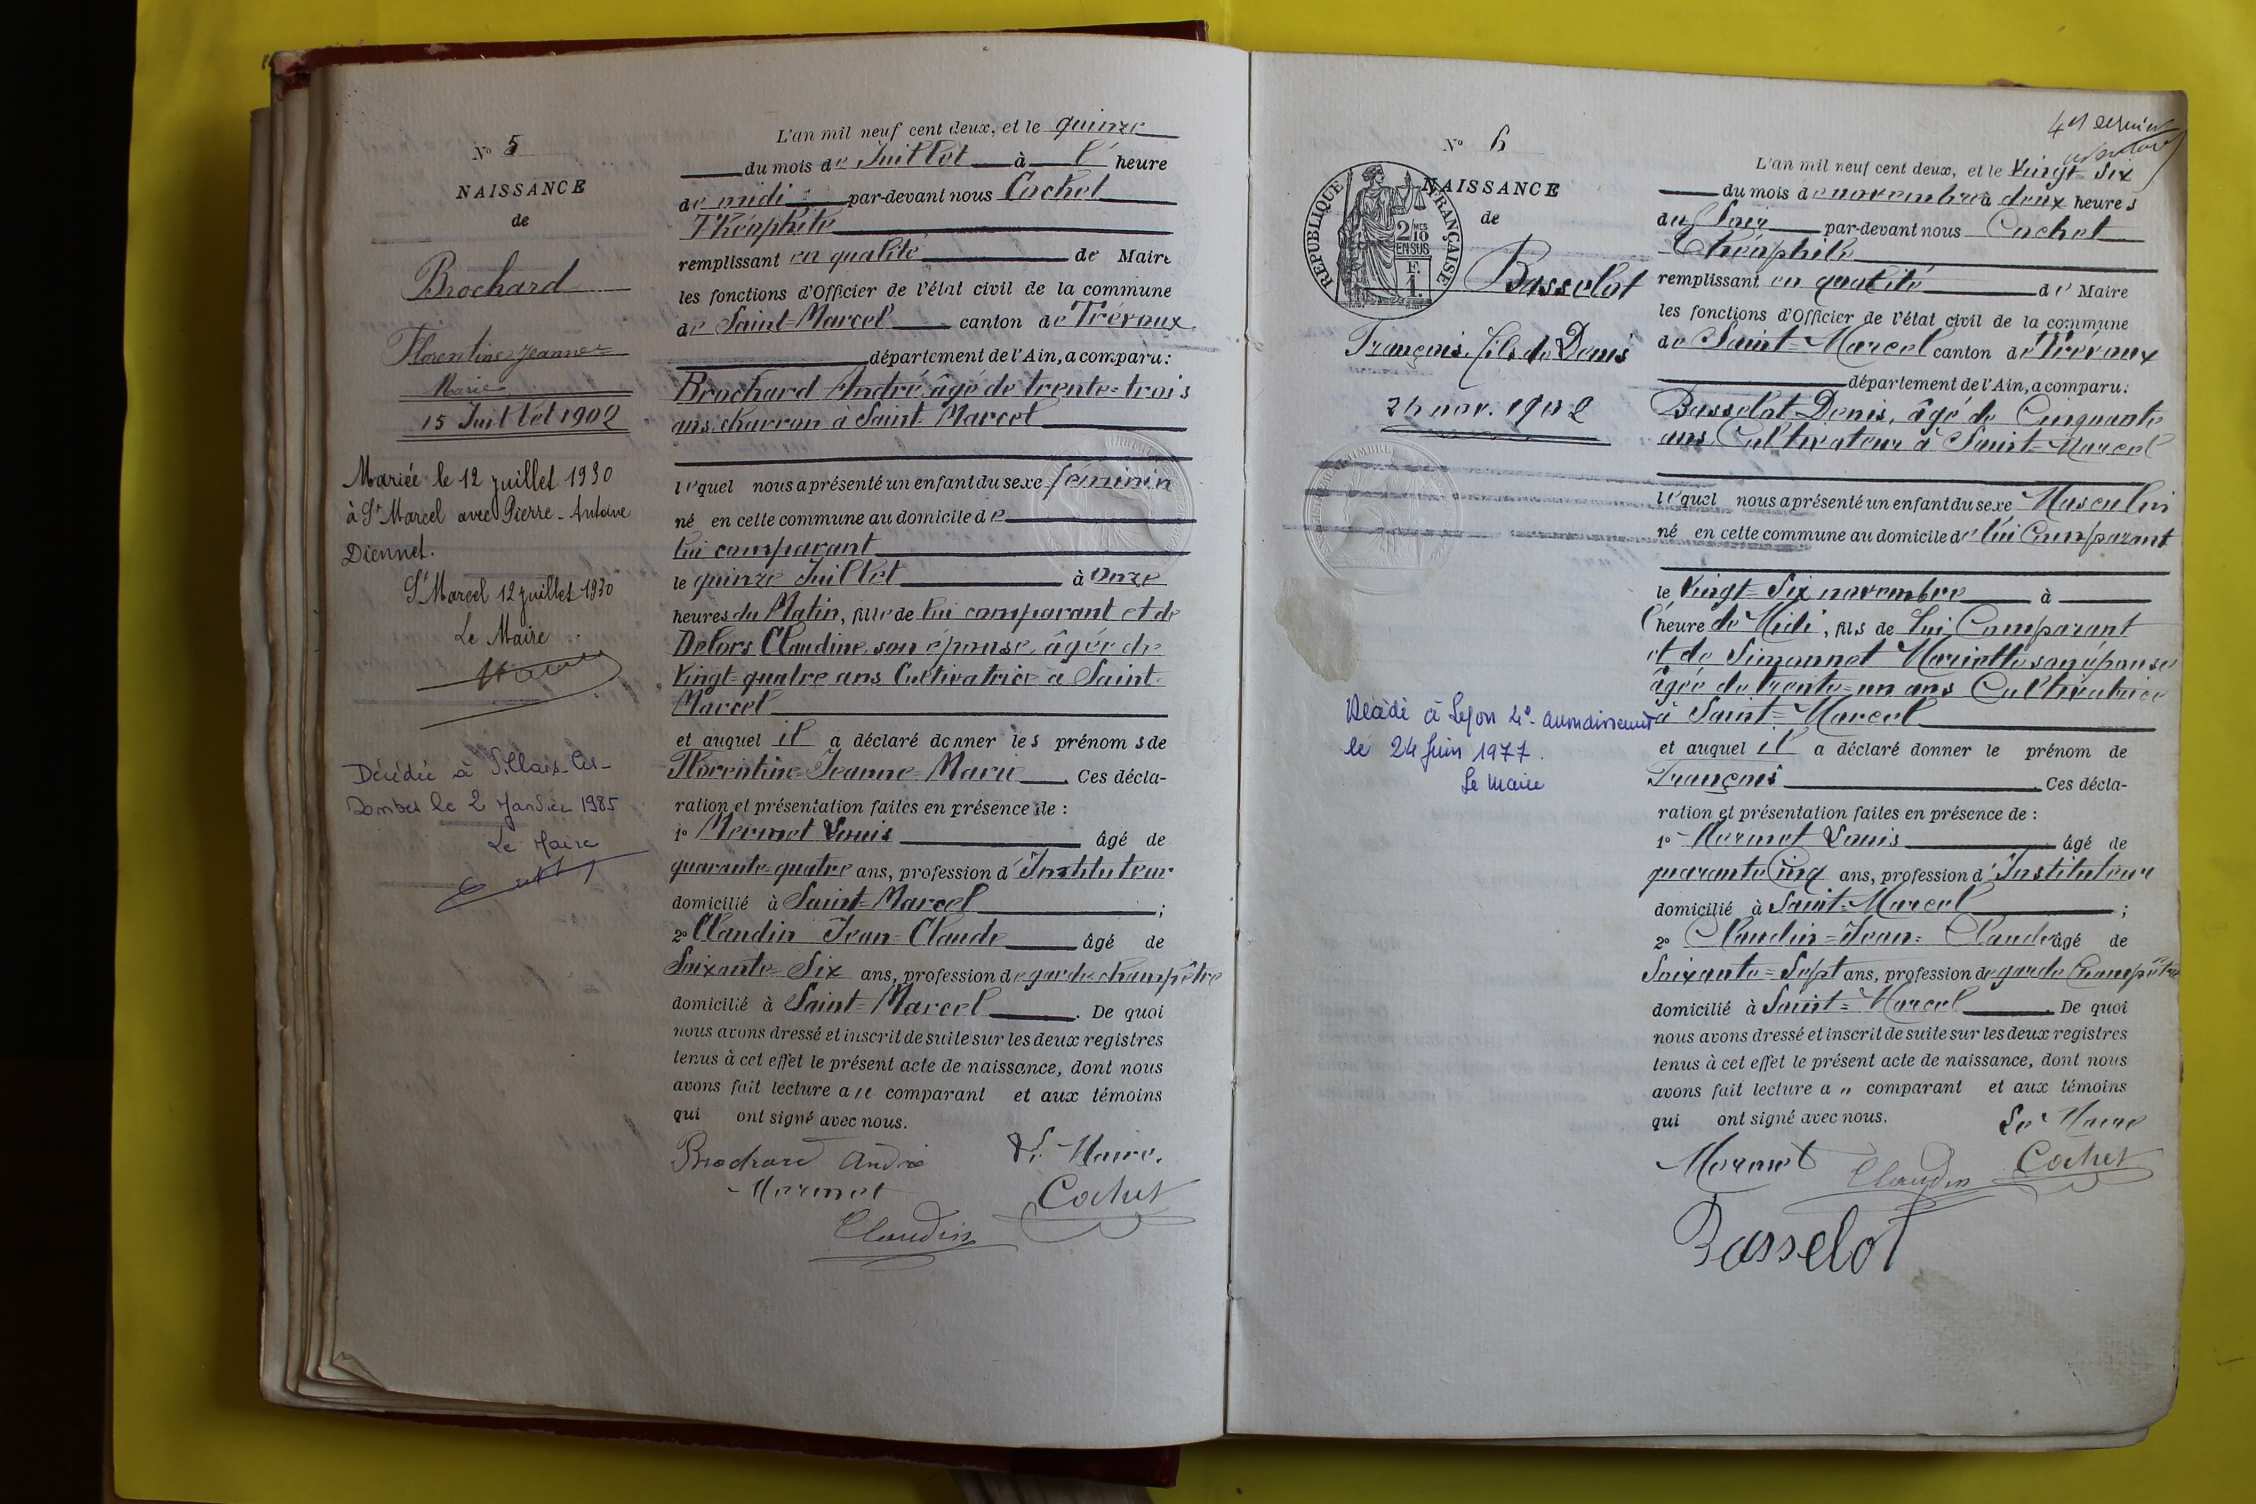 N° 5
NAISSANCE
de
Brochard
Florentine Jeanne
Marie
15 Juillet 1902
Mariée le 12 juillet 1930
à St Marcel avec Pierre-Antoine
Diennet.
St Marcel 12 juillet 1930
Le Maire
Décédée à Villars-les-
Dombes le 2 Janvier 1985
Le Maire
L'an mil neuf cent deux, et le quinze
du mois de Juillet à l' heure
de midi par-devant nous Cochet
Théophile
remplissant en qualité de Maire
les fonctions d'Officier de l'état civil de la commune
de Saint-Marcel canton de Trévoux
département de l'Ain, a comparu:
Brochard André âgé de trente-trois
ans, charron à Saint-Marcel
lequel nous a présenté un enfant du sexe féminin
né en cette commune au domicile de
lui comparant
le quinze Juillet à Onze
heures du Matin, fille de lui comparant et de
Delors Claudine son épouse, âgée de
Vingt-quatre ans Cultivatrice à Saint-
Marcel
et auquel il a déclaré donner les prénoms de
Florentine-Jeanne-Marie. Ces décla-
ration et présentation faites en présence de :
1° Mermet Louis âgé de
quarante-quatre ans, profession d'Instituteur
domicilié à Saint-Marcel ;
2° Claudin Jean-Claude âgé de
Soixante-Six ans, profession de garde champêtre
domicilié à Saint-Marcel. De quoi
nous avons dressé et inscrit de suite sur les deux registres
tenus à cet effet le présent acte de naissance, dont nous
avons fait lecture au comparant et aux témoins
qui ont signé avec nous.
Brochard André Le Maire.
Mermet Cochet
Claudin
N° 6
NAISSANCE
de
RÉPUBLIQUE FRANÇAISE
2 MES
10
EN SUS
F.
1.
Basselot
François, fils de Denis
26 nov. 1902
Décédé à Lyon 4e arrondissement
le 24 Juin 1977.
Le Maire
4et dernier
L'an mil neuf cent deux, et le Vingt-Six
du mois de novembre à deux heures
du Soir par-devant nous Cochet
Théophile
remplissant en qualité de Maire
les fonctions d'Officier de l'état civil de la commune
de Saint-Marcel canton de Trévoux
département de l'Ain, a comparu:
Basselot Denis, âgé de Cinquante
ans Cultivateur à Saint-Marcel
lequel nous a présenté un enfant du sexe Masculin
né en cette commune au domicile de lui Comparant
le Vingt-Six novembre à
l'heure de Midi, fils de Lui Comparant
et de Simonnet Mariette son épouse
âgée de trente-un ans Cultivatrice
à Saint-Marcel
et auquel il a déclaré donner le prénom de
François. Ces décla-
ration et présentation faites en présence de :
1° Mermet Louis âgé de
quarante Cinq ans, profession d'Instituteur
domicilié à Saint-Marcel ;
2° Claudin-Jean-Claude âgé de
Soixante-Sept ans, profession de garde Champêtre
domicilié à Saint-Marcel. De quoi
nous avons dressé et inscrit de suite sur les deux registres
tenus à cet effet le présent acte de naissance, dont nous
avons fait lecture a " comparant et aux témoins
qui ont signé avec nous. Le Maire
Mermet Claudin Cochet
Basselot